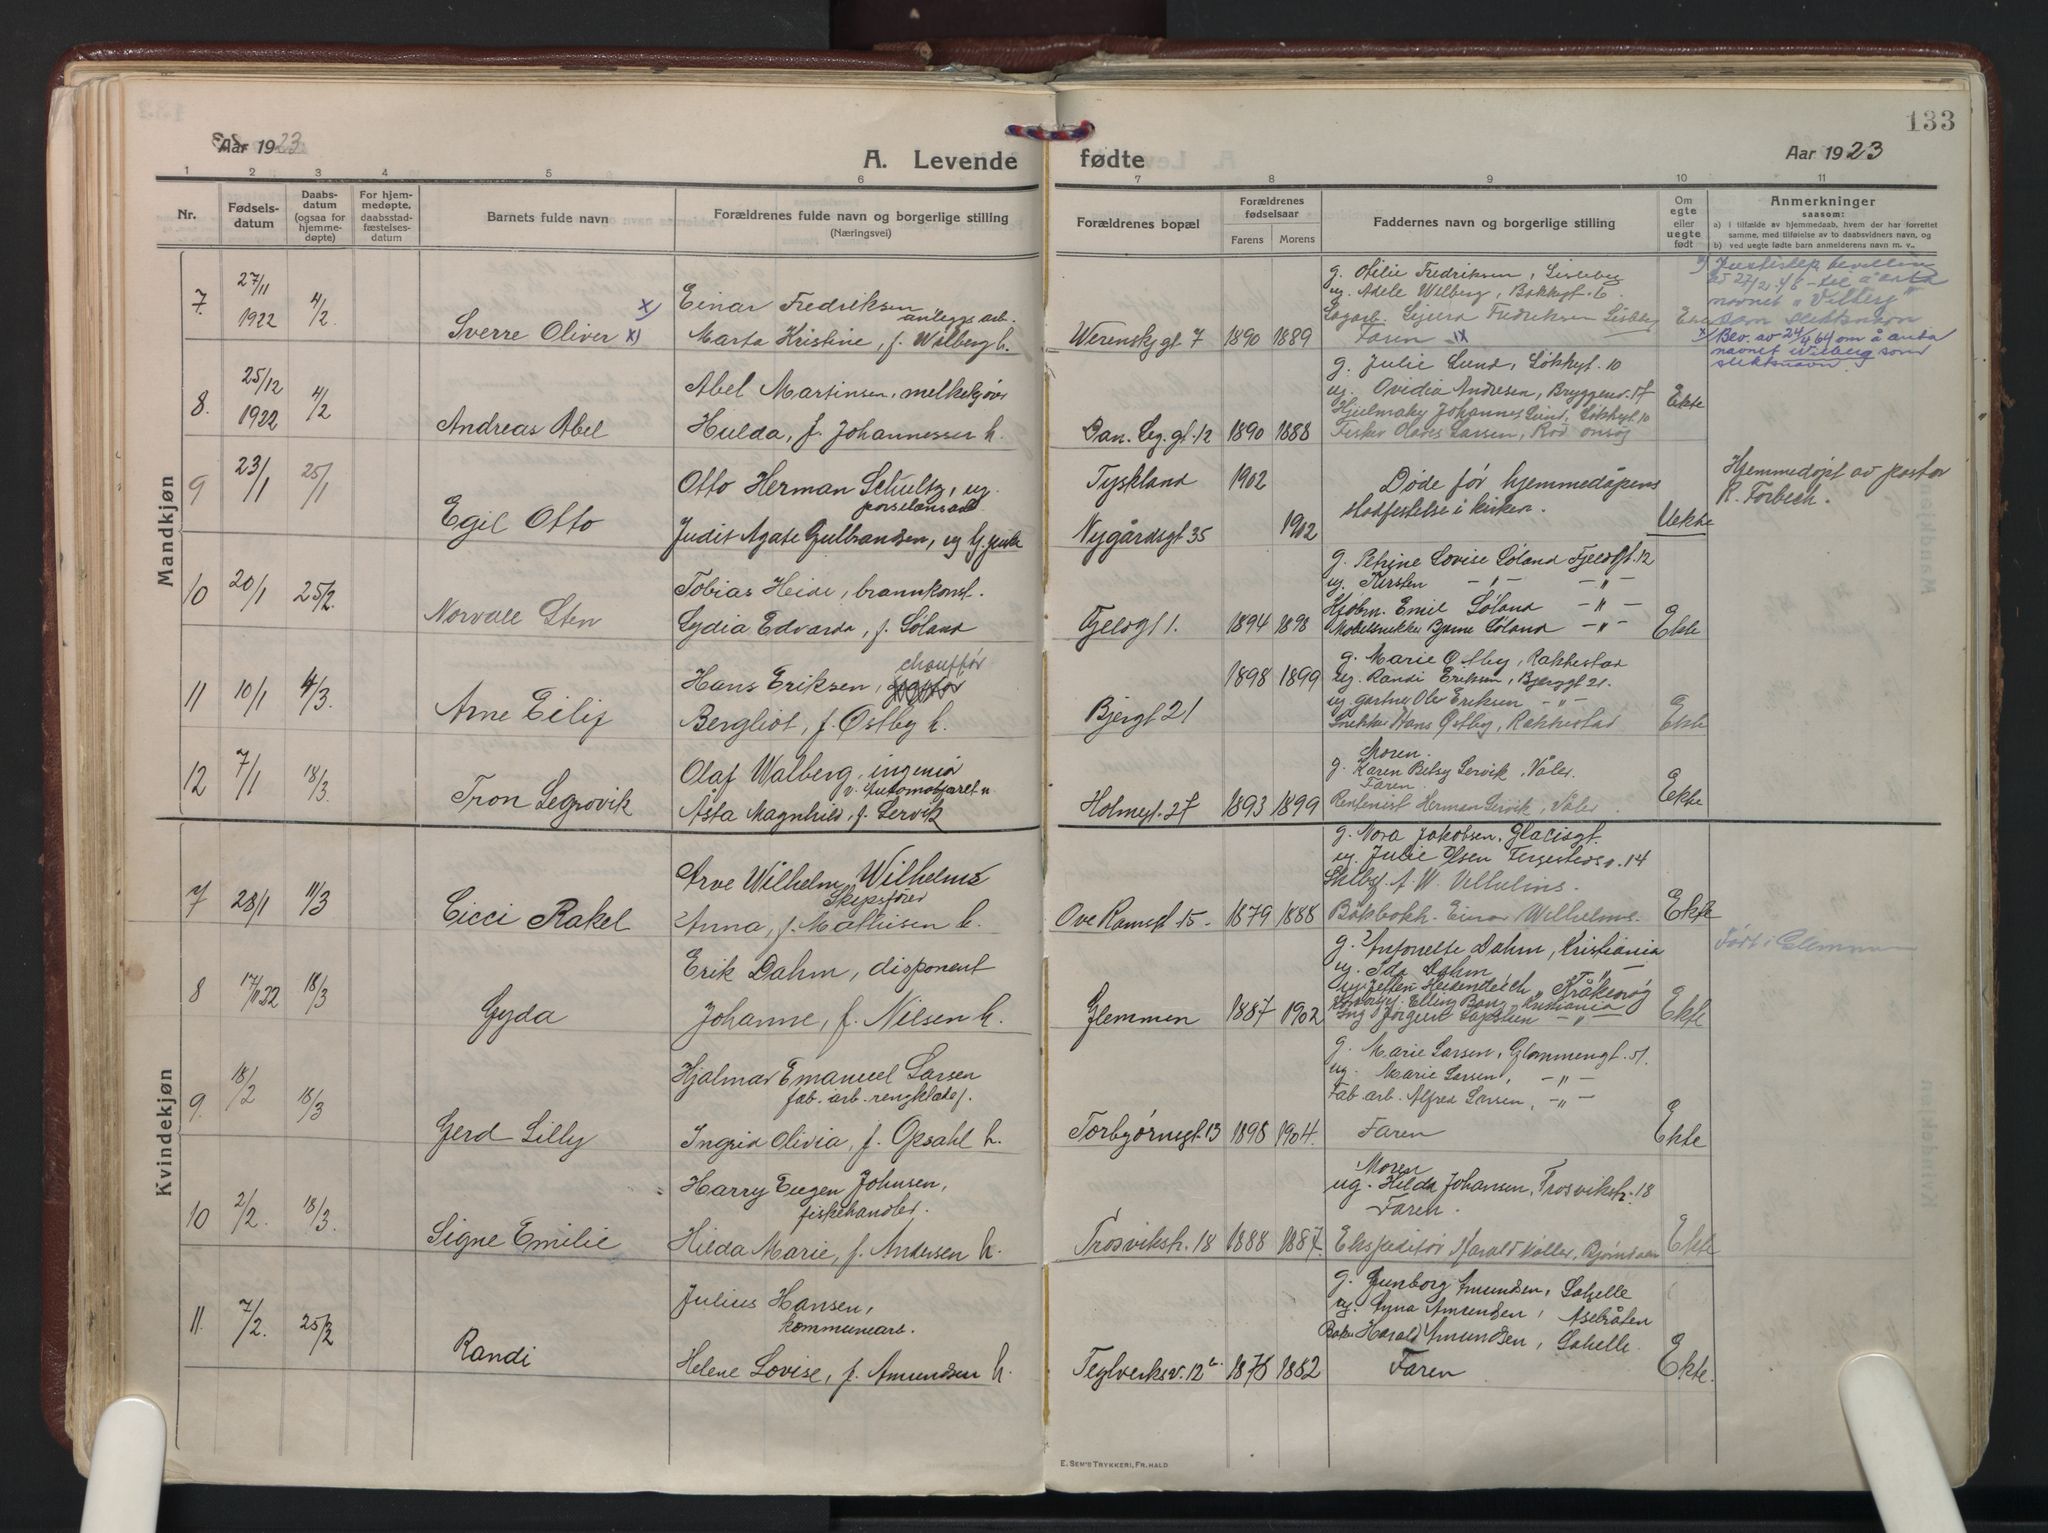 133
Aar 1923
A. Levende
fødte
Aar 1923
1 2 3 4 5 6 7 8 9 10 11
Nr.
Fødsels-
datum
Daabs-
datum
(ogsaa for
hjemme-
døpte)
For hjem-
medøpte,
daabsstad-
fæstelses-
datum
Barnets fulde navn
Forældrenes fulde navn og borgerlige stilling
(Næringsvei)
Forældrenes bopæl
Forældrenes
fødselsaar
Farens Morens
Faddernes navn og borgerlige stilling
Om
egte
eller
uegte
født
Anmerkninger
saasom:
a) i tilfælde av hjemmedaab, hvem der har forrettet
samme, med tilføielse av to daabsvidners navn, og
b) ved uegte fødte barn anmelderens navn m. v..
Mandkjøn
7. 27/11 1922 4/2. Sverre Oliver x)
Einar Fredriksen
anleggsarb.
Marta Kristine, f. Wilberg h.
Werenskj.gt 7 1890 1889
g. Otilie Fredriksen, Lisleby
ug. Adele Wilberg, Bakkegt. 6
Fredriksen Lisleby
Faren
navnet "Vilberg"
som slektsnavn
x) Bev. av 24/4 64 om å anta
navnet Wilberg som
slektsnavn.
8. 25/12 1922 4/2 Andreas Abel
Abel Martinsen, melkekjører
Hulda, f. Johannessen h.
Dan. Leg. gt. 12 1890 1888
g. Julie Lund, Løkkegt. 10
ug. Ovidia Andresen, Bryggeriv. 17
Johannes Lund, Løkkegt. 10
Fisker Olaves Larsen, Rød Onsøy
Ekte
9 23/1 25/1 Egil Otto
Otto Herman Schultz, ug.
porselensarb.
Judit Agate Gulbrandsen, ug
Tyskland 1902
Nygårdsgt 35 1902
Døde før hjemmedåpens
stadfestelse i kirken.
Uekte
Hjemmedøpt av pastor
R. Torbech.
10 20/1 25/2. Norvall Sten
Tobias Heide, brannkonst.
Lydia Edvarda, f. Søland
Fjeldgt 1. 1894 1898
g. Petrine Lovise Søland Fjeldgt. 12
ug. Kirsten — " — — " —
Emil Søland — " —
Modellsnekker Bjarne Søland — " —
Ekte
11 10/1 4/3. Arne Eilif
chauffør
Hans Eriksen,
Bergliot, f. Østby h.
Bjergt 21 1898 1899
g. Marie Østby, Rakkestad
ug. Randi Eriksen, Bjerggt 21.
ug gartner Olav Eriksen — " —
Snekker Hans Østby, Rakkestad
Ekte
12 7/1 18/3. Tron Segrovik
Olaf Walberg, ingeniør
v. Automobjaret n
Åsta Magnhild, f. Lervik
Holmegt. 27 1893 1899
Moren.
g. Karen Betsy Lervik, Våler.
Faren.
Rentenist Herman Lervik, Våler
Ekte
Kvindekjøn
7 28/1 11/3 Cicci Rakel
Arve Wilhelm Wilhelms
Skipsfører
Anna, f. Mathisen h.
Ove Ramsgt 15 1879 1888
g. Nora Jakobsen, Glacisgt.
ug. Julie Olsen 14
Einar Wilhelms.
Ekte
8 17/11 22 18/3 Gyda
Erik Dahm, disponent
Johanne, f. Nilsen h.
Glemmen 1887 1902
g. Antonette Dahm, Kristiania
ug. Ida Dahm — " —
Kråkerøy
Kristiania
Ekte
Født i Glemmen
9. 18/2 18/3 Gerd Lilly
Hjalmar Emanuel Larsen
fab. arb. rengklædef.
Ingrid Olivia, f. Opsahl h.
Torbjørnsgt. 13 1898 1904.
g. Marie Larsen, Glommengt. 51.
ug. Marie Larsen, — " —
Fab arb. Alfred Larsen, — " —
Faren
Ekte
10 2/2. 18/3. Signe Emilie
Harry Eugen Johnsen,
fiskehandler.
Hilda Marie, f. Andersen h.
Trosvikstr. 18 1888 1887.
Moren
ug. Hilda Johansen, Trosvikstr. 18
Faren.
Ekspeditør Harald Møller,
Ekte
11. 7/2. 25/2 Randi
Julius Hansen,
kommunearb.
Helene Lovise, f. Amundsen h.
Teglverksv. 12 b 1878 1882
g. Gunborg Amundsen, Labelle
ug. Lyna Amundsen,
Baker Harald Amundsen, Labelle.
Faren
Ekte.
E. SEM'S TRYKKERI, FR.HALD